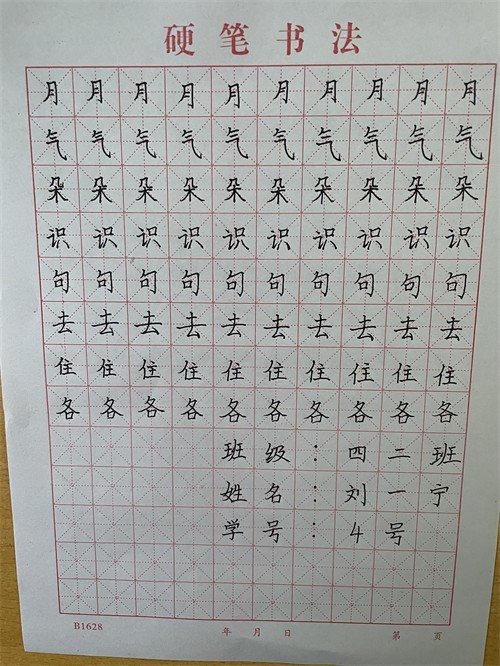 硬笔书法
月月月月月月月月月月
气气气气气气气气气气
朵朵朵朵朵朵朵朵朵朵
识识识识识识识识识识
句句句句句句句句句句
去去去去去去去去去去
住住住住住住住住住住
各各各各各各各各各各
班级：四二班
姓名：刘一宁
学号：4号
B1628 年 月 日 第 页